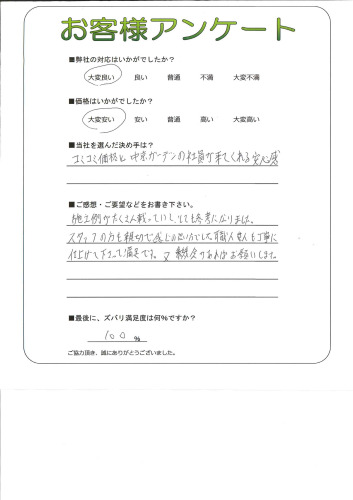 お客様アンケート
■弊社の対応はいかがでしたか？
大変良い 良い 普通 不満 大変不満
■価格はいかがでしたか？
大変安い 安い 普通 高い 大変高い
■当社を選んだ決め手は？
コミコミ価格と中京ガーデンの社員が来てくれる安心感
■ご感想・ご要望などをお書き下さい。
施工例がたくさん載っていし、とても参考になりました。
スタッフの方も親切で感じが良い方でした。職人さんも丁寧に
仕上げて下さって満足です。又機会があればお願いします。
■最後に、ズバリ満足度は何%ですか？
100 %
ご協力頂き、誠にありがとうございました。